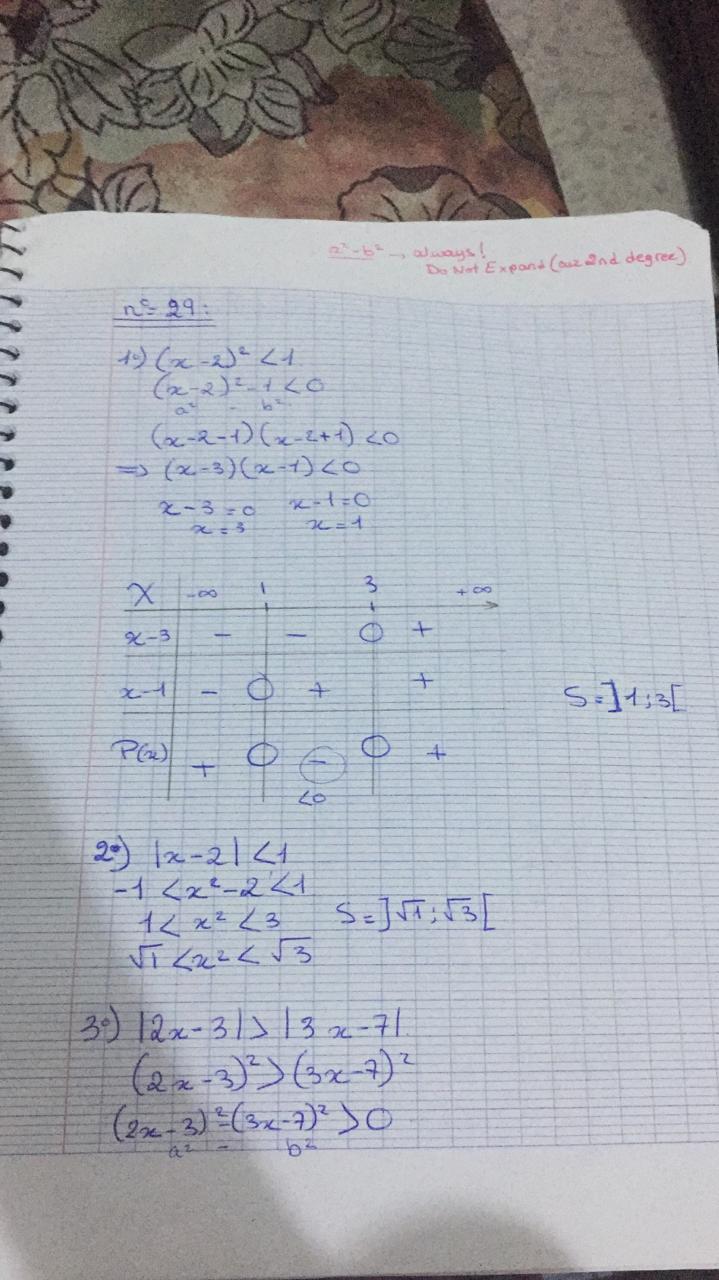 a²-b² → always!
Do Not Expand (cuz 2nd degree)
n° 29:
1°) (x-2)² <1
(x-2)²-1<0
a² - b²
(x-2-1)(x-2+1)<0
⇒ (x-3)(x-1)<0
x-3=0 x-1=0
x=3 x=1
X -∞ 1 3 +∞
x-3 - - 0 +
x-1 - 0 + +
S=]1;3[
P(x) + 0 - 0 +
<0
2°) |x-2|<1
-1 <x²-2<1
1< x² <3 S=]√1;√3[
√1 <x²< √3
3°) |2x-3|>|3x-7|
(2x-3)²>(3x-7)²
(2x-3)²-(3x-7)²>0
a² - b²